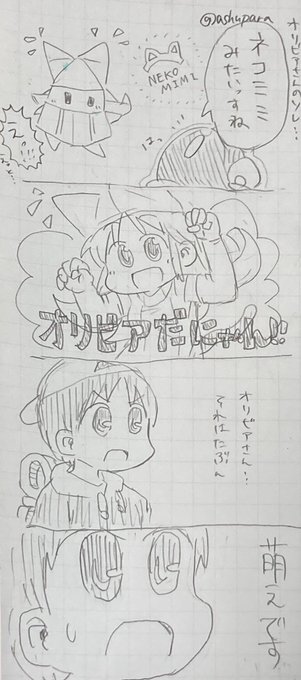 @ashupara
オリビアさんのいし…
ネコミミ
みたいっすね
NEKO
MIMI
はっ
オリビアだにゃん!!
オリビアさん…
それはたぶん
萌えです